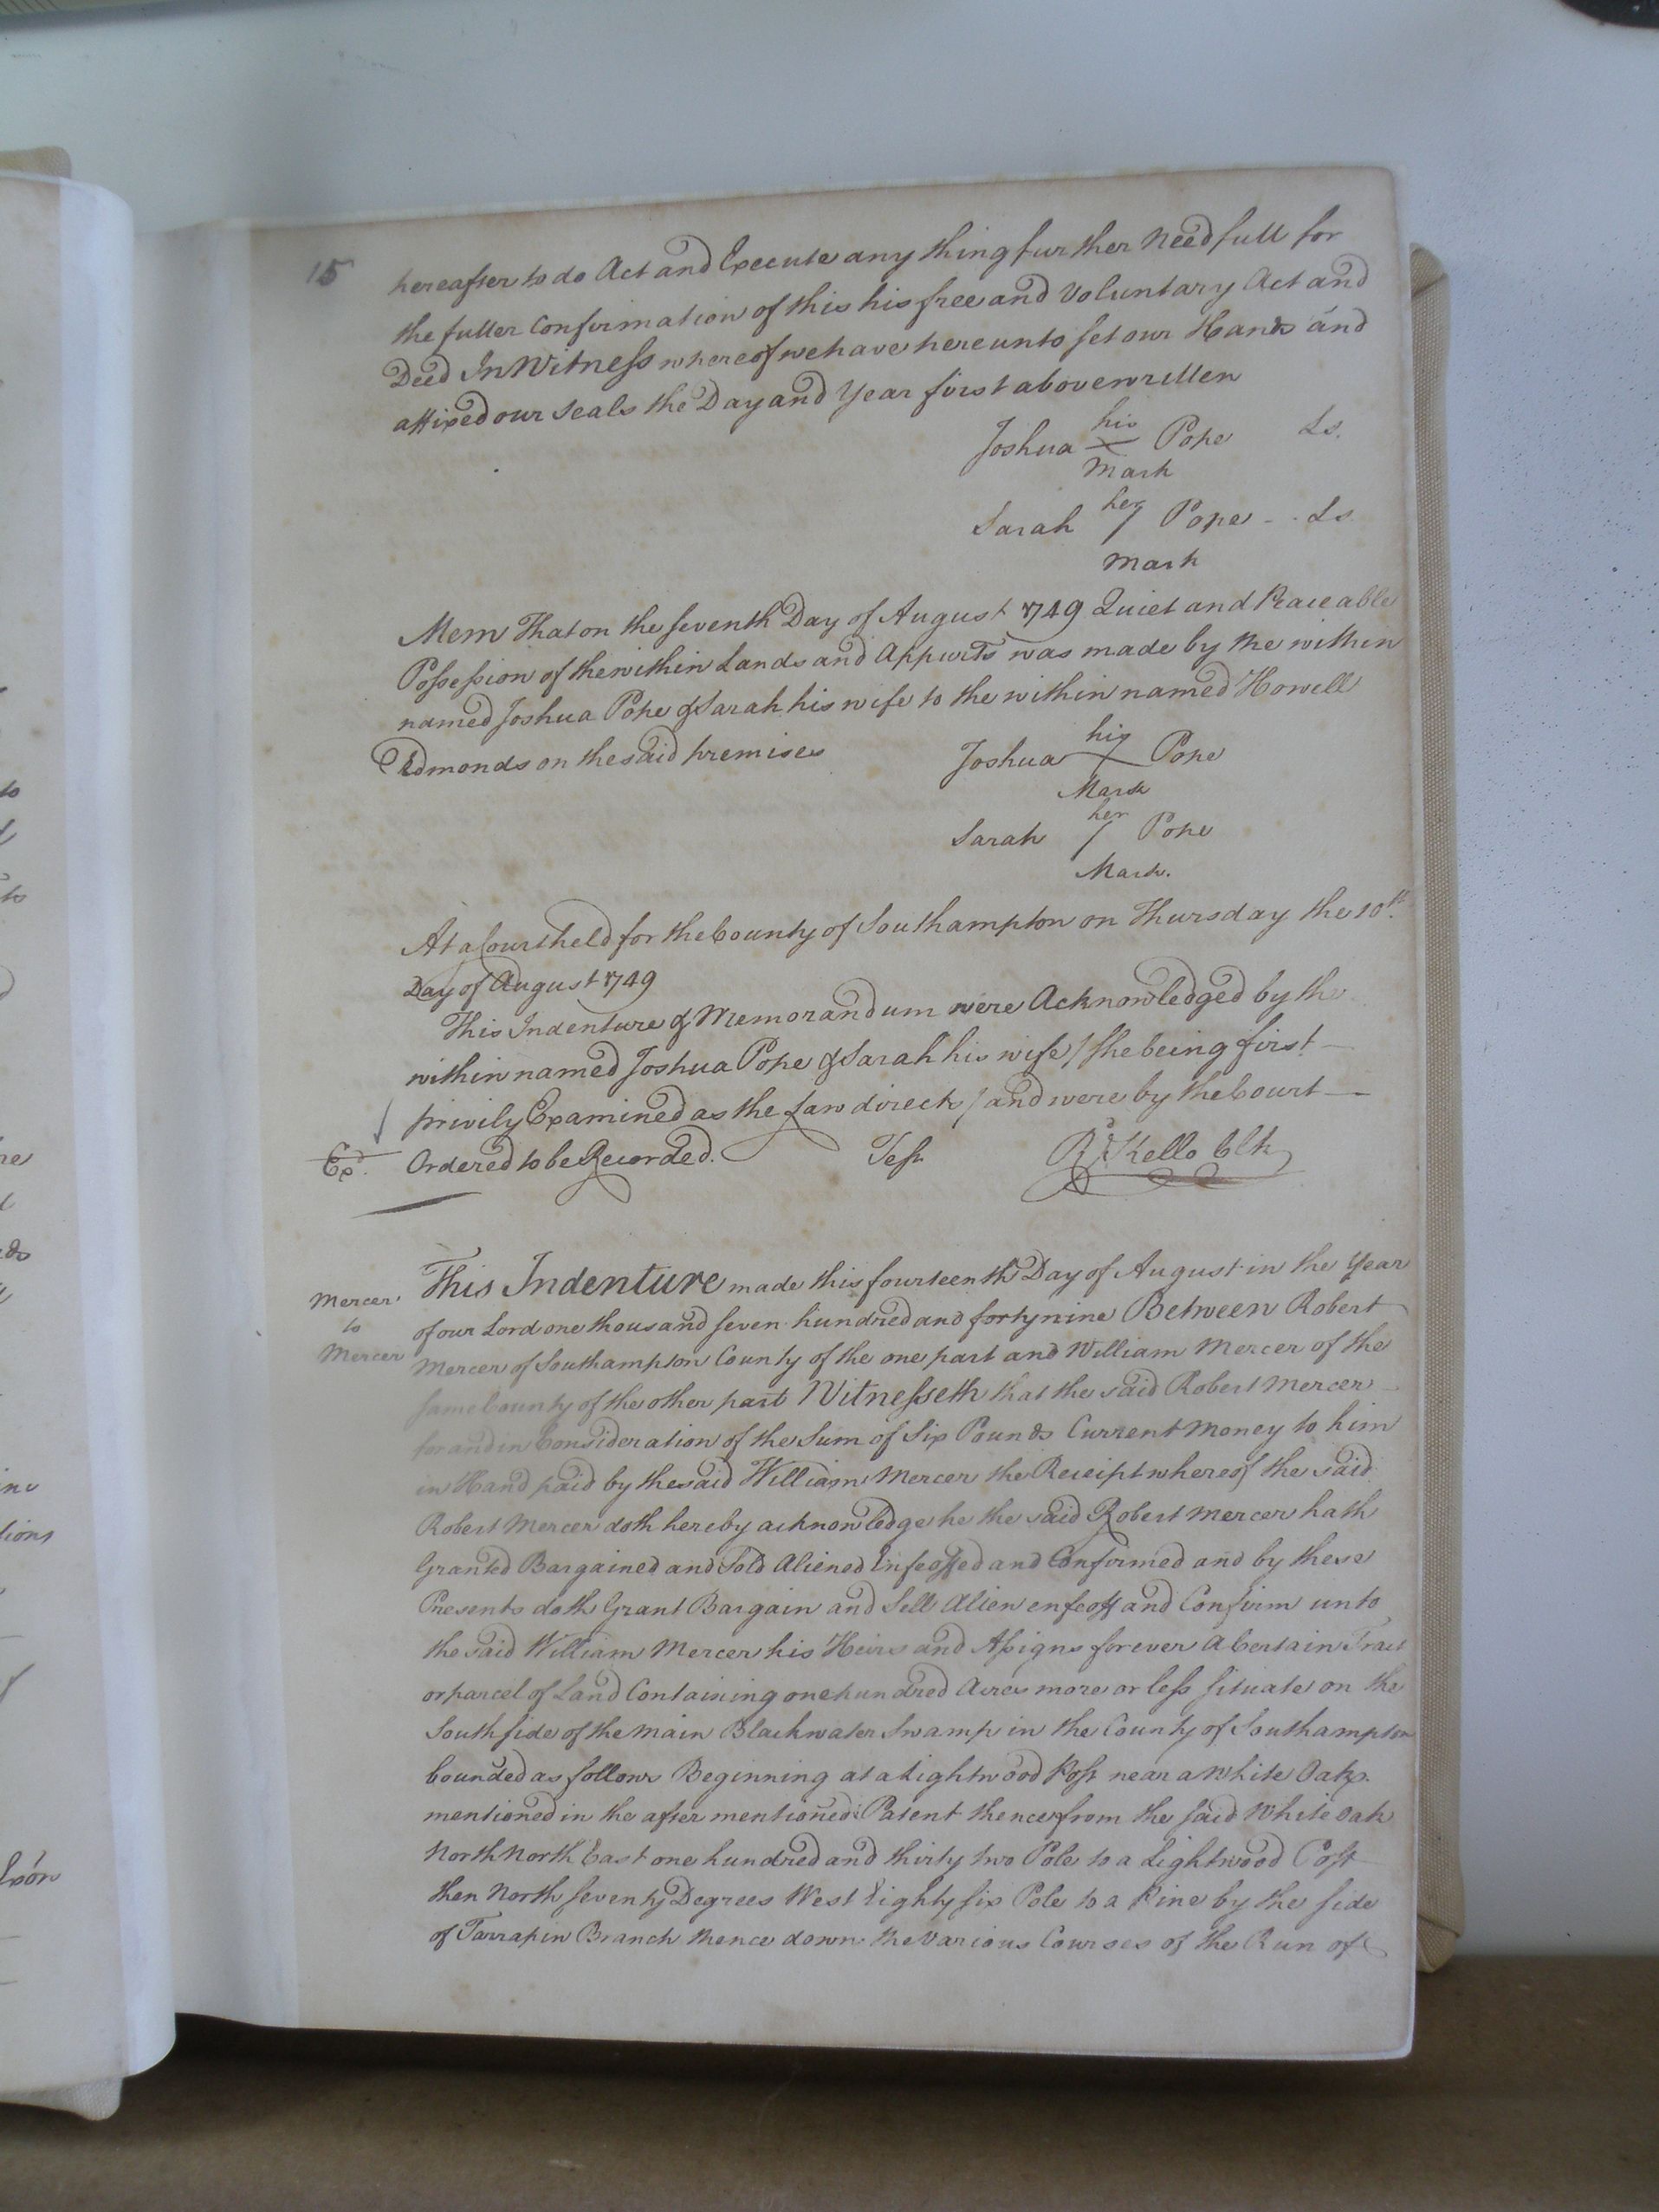 15
hereafter to do Act and Execute any thing further Needfull for
the fuller Confirmation of this his free and Voluntary Act and
Deed In Witness whereof we have hereunto set our Hands and
affixed our Seals the Day and Year first above written
his
Joshua X Pope Ls.
Mark
her
Sarah / Pope - - Ls
Mark
Mem That on the seventh Day of August 1749 Quiet and Peaceable
Possession of the within Lands and Appurts was made by the within
named Joshua Pope & Sarah his wife to the within named Howell
Edmonds on the said premises
his
Joshua X Pope
Mark
her
Sarah / Pope
Mark.
At a Court held for the County of Southampton on Thursday the 10th.
Day of August 1749
This Indenture & Memorandum were Acknowledged by the
within named Joshua Pope & Sarah his wife / she being first
privily Examined as the Law directs / and were by the Court
Exd. Ordered to be Recorded. Test Rd. Kello Clk
Mercer
to
Mercer
This Indenture made this fourteenth Day of August in the Year
of our Lord one thousand seven hundred and forty nine Between Robert
Mercer of Southampton County of the one part and William Mercer of the
same County of the other part Witnesseth that the said Robert Mercer
for and in Consideration of the Sum of Six Pounds Current Money to him
in Hand paid by the said William Mercer the Receipt whereof the said
Robert Mercer doth hereby acknowledge he the said Robert Mercer hath
Granted Bargained and Sold Aliened Enfeoffed and Confirmed and by these
Presents doth Grant Bargain and Sell Alien enfeoff and Confirm unto
the said William Mercer his Heirs and Assigns forever A Certain Tract
or parcel of Land Containing one hundred Acres more or less situate on the
South side of the Main Blackwater Swamp in the County of Southampton
bounded as follows Beginning at a Lightwood Post near a White Oak
mentioned in the after mentioned Patent thence from the said White Oak
North North East one hundred and thirty two Pole to a Lightwood Post
then North seventy Degrees West Eighty six Pole to a Pine by the side
of Tarrapin Branch thence down the Various Courses of the Run of